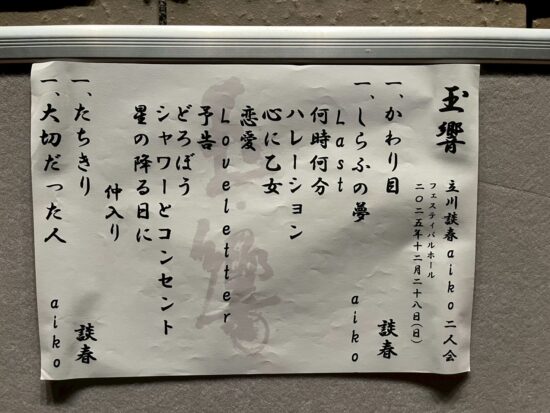 玉響
立川談春 aiko 二人会
フェスティバルホール
二〇二五年十二月二十八日(日)
一、かわり目 談春
一、しらふの夢 aiko
Last
何時何分
ハレーション
心に乙女
恋愛
Loveletter
予告
どろぼう
シャワーとコンセント
星の降る日に
仲入り
一、たちきり 談春
一、大切だった人 aiko
玉響